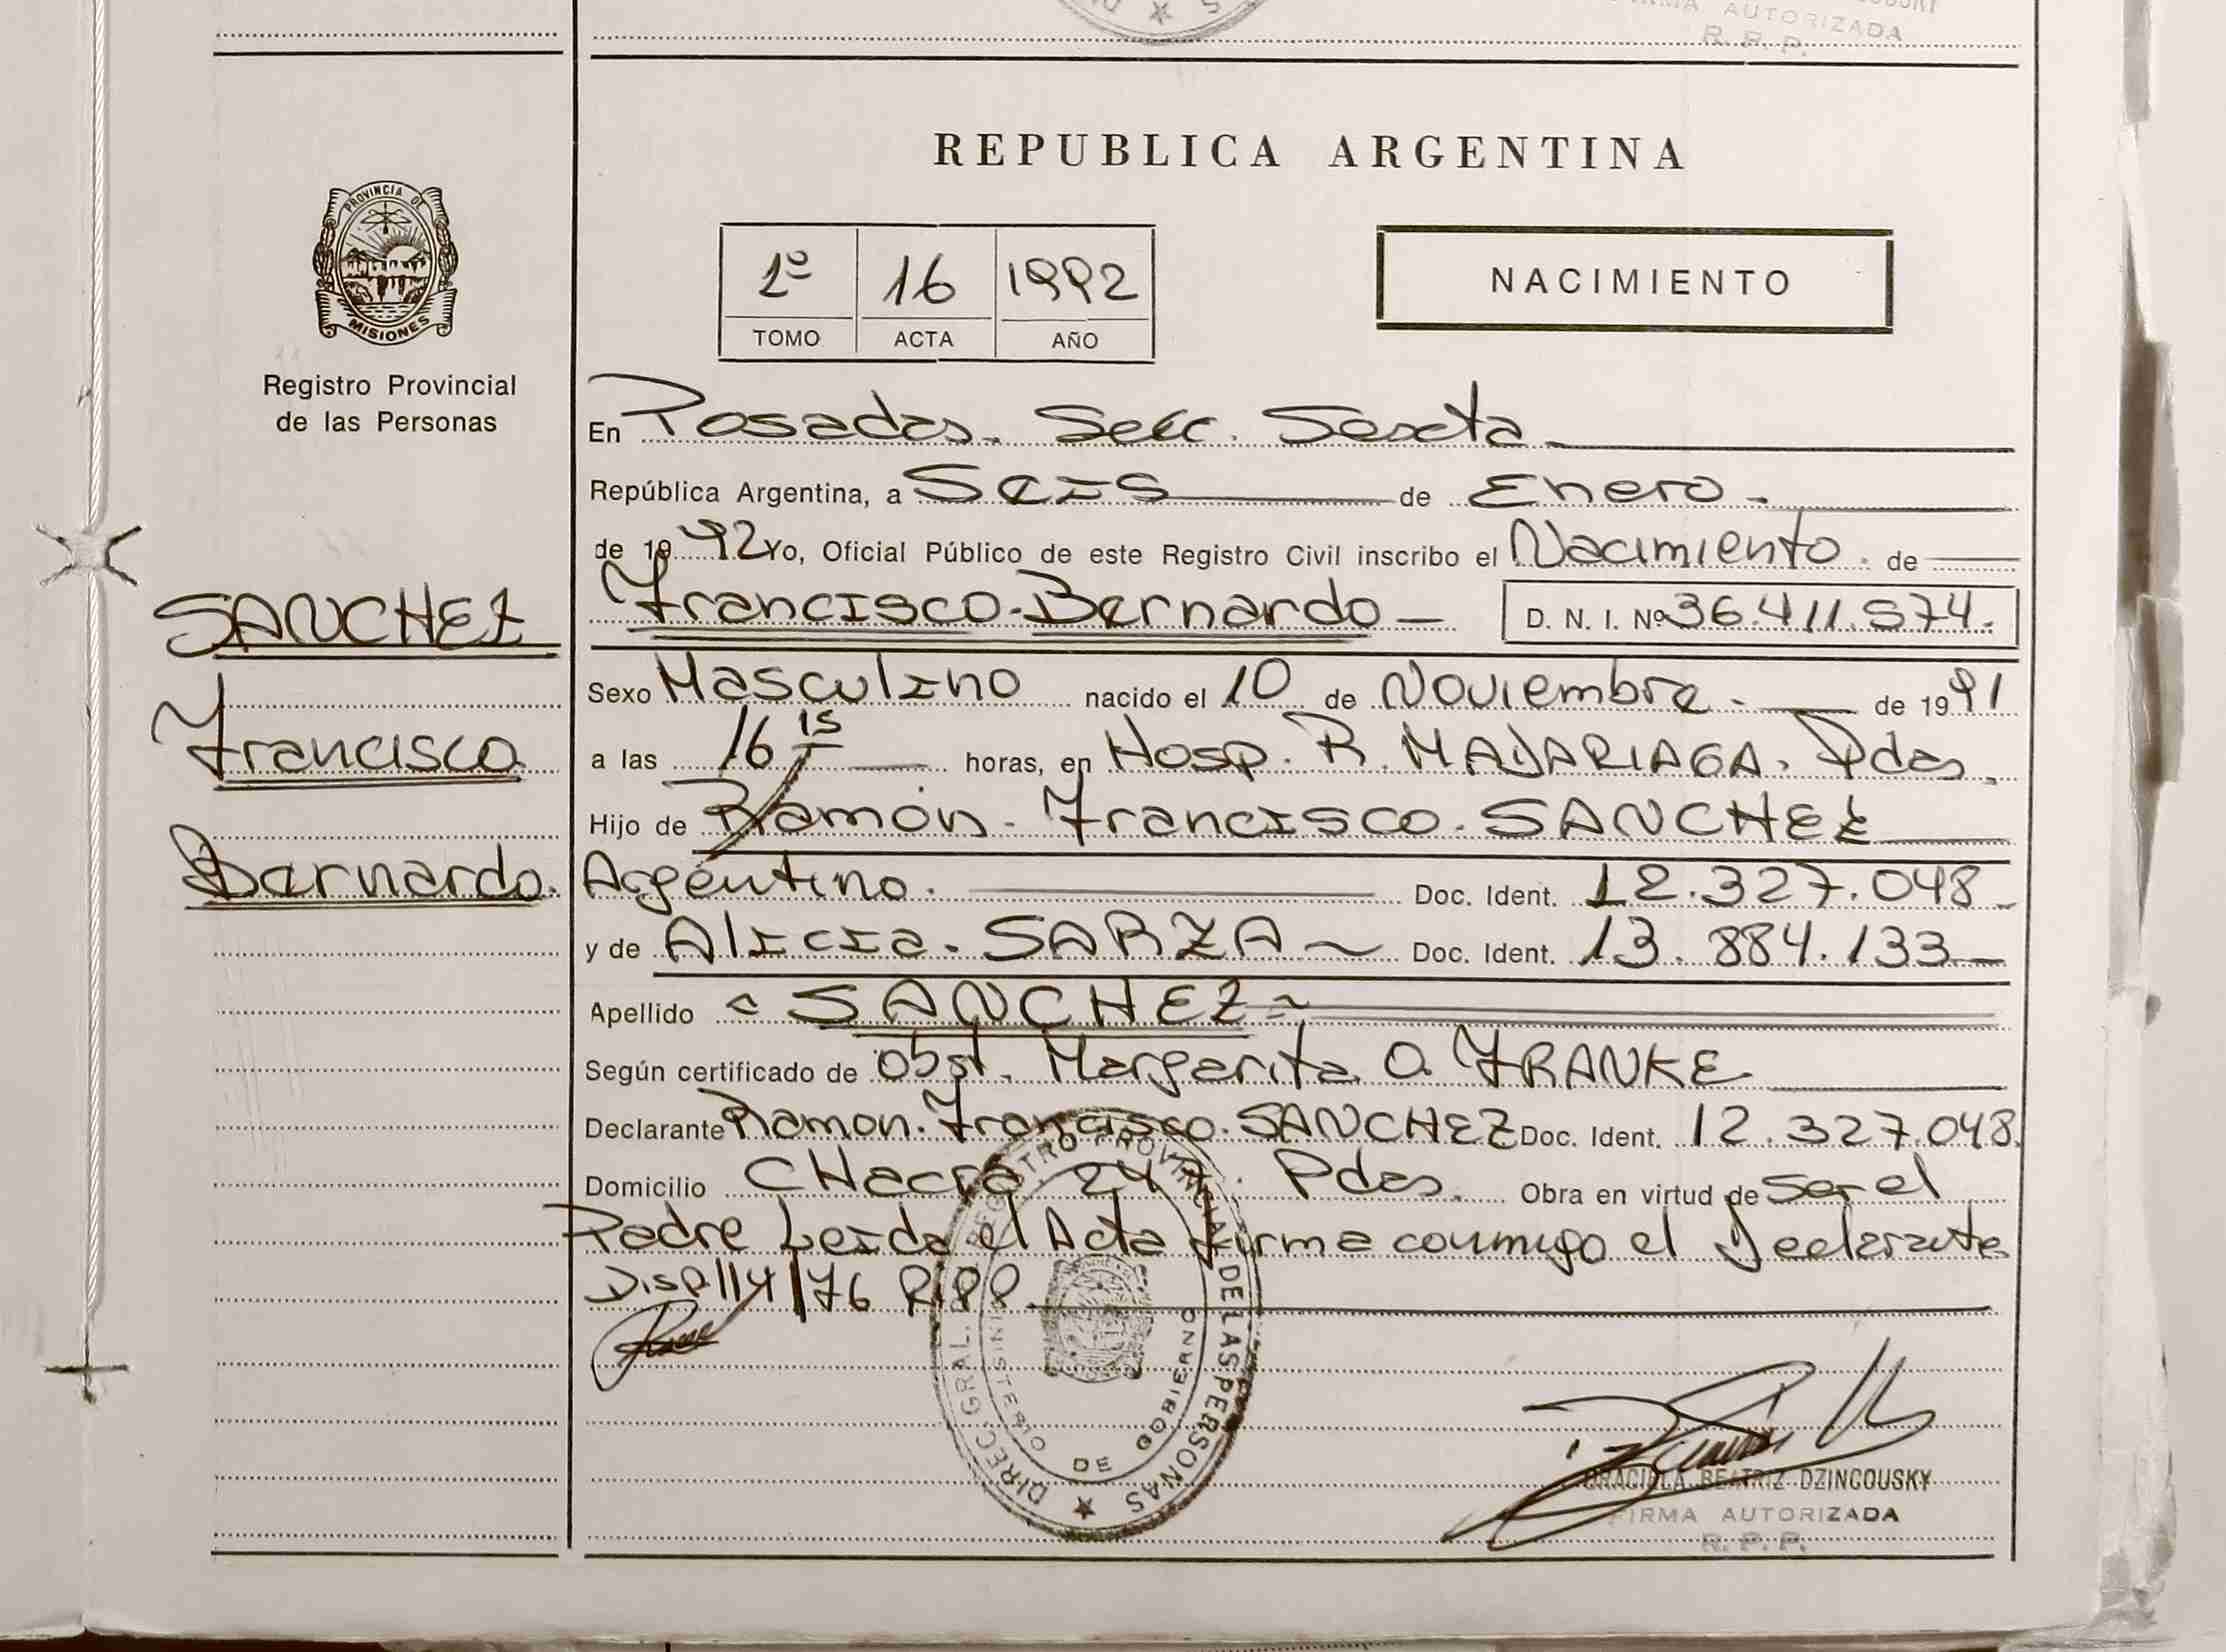 AUTORIZADA
R. P. P.
REPUBLICA ARGENTINA
PROVINCIA DE
MISIONES
Registro Provincial
de las Personas
1º 16 1992
TOMO ACTA AÑO
NACIMIENTO
En Posadas. Secc. Sexta
República Argentina, a Seis de Enero.
de 1992 Yo, Oficial Público de este Registro Civil inscribo el Nacimiento. de
SANCHEZ
Francisco
Bernardo.
Francisco Bernardo D. N. I. Nº 36.411.574.
Sexo Masculino nacido el 10 de Noviembre. de 1991
a las 16 15 horas, en Hosp. R. MADARIAGA. Pdas.
Hijo de Ramón Francisco SANCHEZ
Argentino. Doc. Ident. 12.327.048
y de Alicia SARZA Doc. Ident. 13.884.133
Apellido SANCHEZ
Según certificado de Obst. Margarita O. FRANKE
Declarante Ramon Francisco SANCHEZ Doc. Ident. 12.327.048.
Domicilio CHacra 247. Pdas. Obra en virtud de Ser el
Padre Leida el Acta firma conmigo el Declarante
Disp 114/76 R.P.P.
DIREC. GRAL. REGISTRO PROVINCIAL DE LAS PERSONAS
MINISTERIO DE GOBIERNO
GRACIELA BEATRIZ DZINCOUSKY
FIRMA AUTORIZADA
R. P. P.